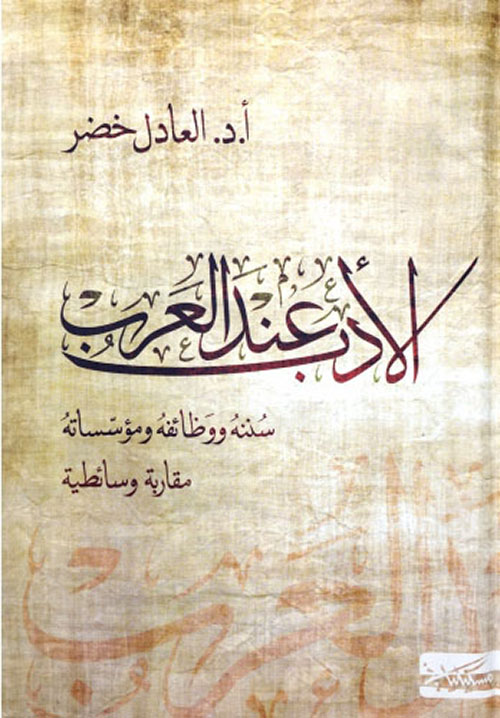 أ.د. العادل خضر
الأدب عند العرب
سُننهُ ووَظائفهُ ومؤسّساتهُ
مقاربة وسائطية